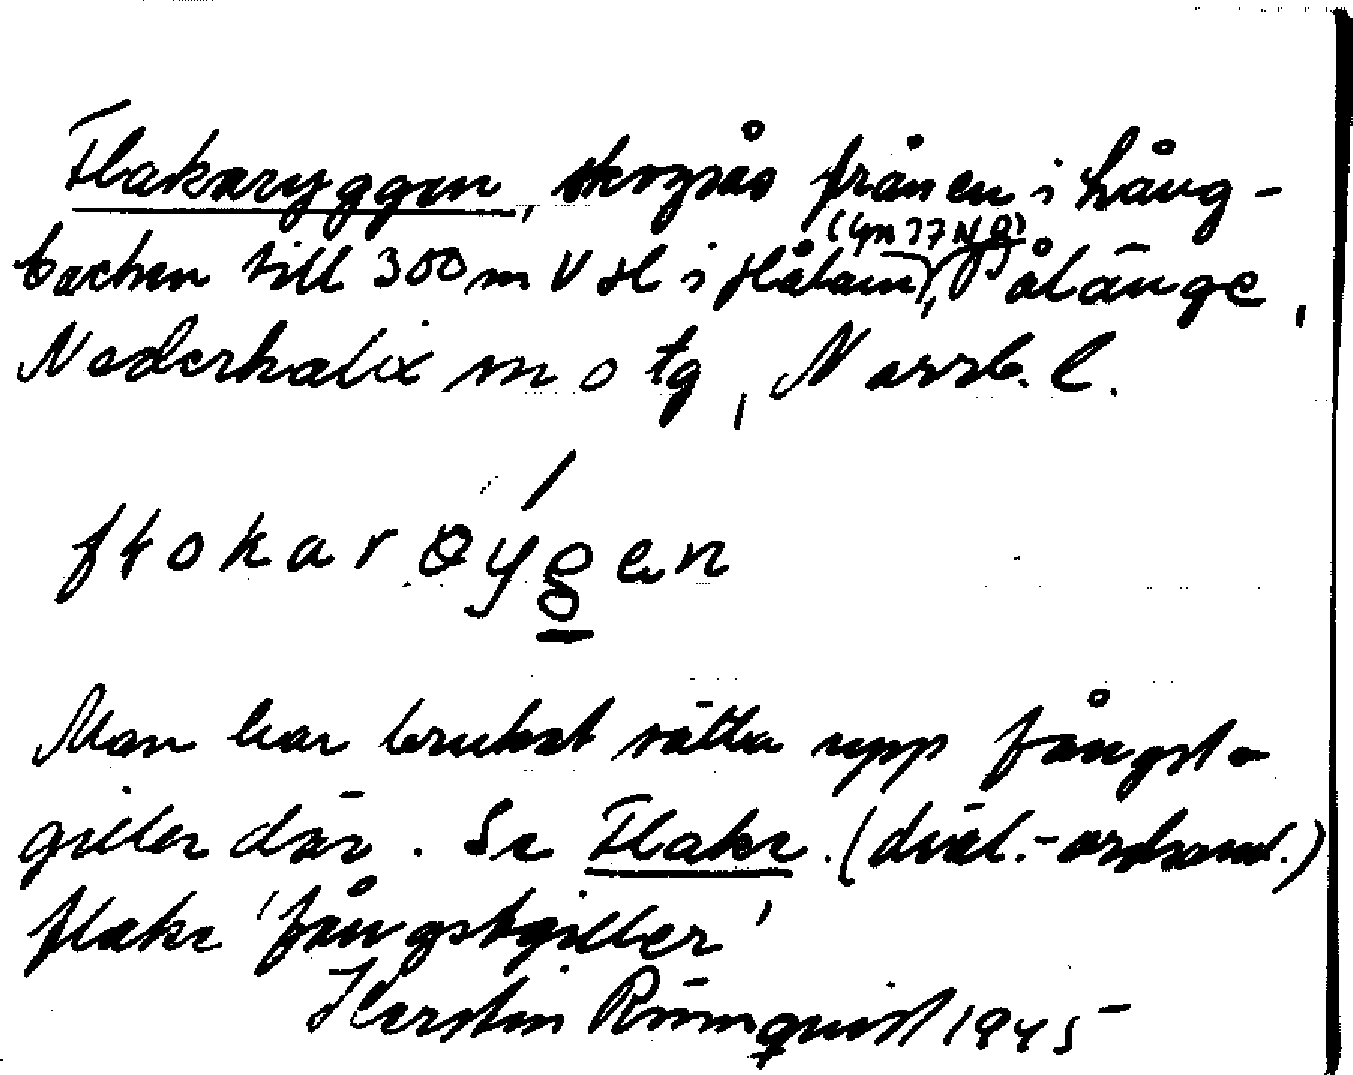 Flakaryggen, skogsås från en i Lång-
backen till 300 m V Hl i Hålam, Ålänge,
Nederkalix sn o tg, Norrb. l.
Man har brukat sätta upp fångst-
giller där. Se Flake (dial.-ordsaml.)
flake 'fångstgiller'
Kerstin Rönnquist 1945